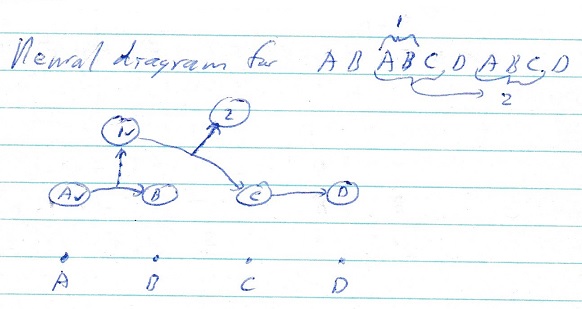 1
Neural diagram for A B A B C, D A B C, D
2
2
1
A B C D
A B C D